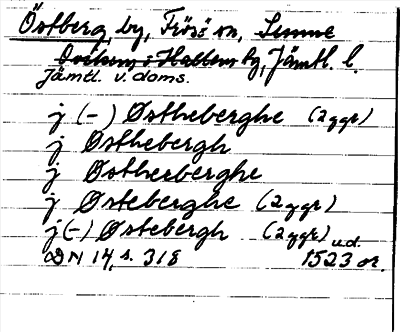 Östberg, by, Frösö sn, Sunne
Ovikens o Hallens tg, Jämtl. l.
Jämtl. v. doms.
j (-) Østheberghe (2 ggr)
j Østhebergh
j Østherberghe
j Østeberghe (2 ggr)
j (-) Østebergh (2 ggr) u.d.
DN 14, s. 318 1523 or.